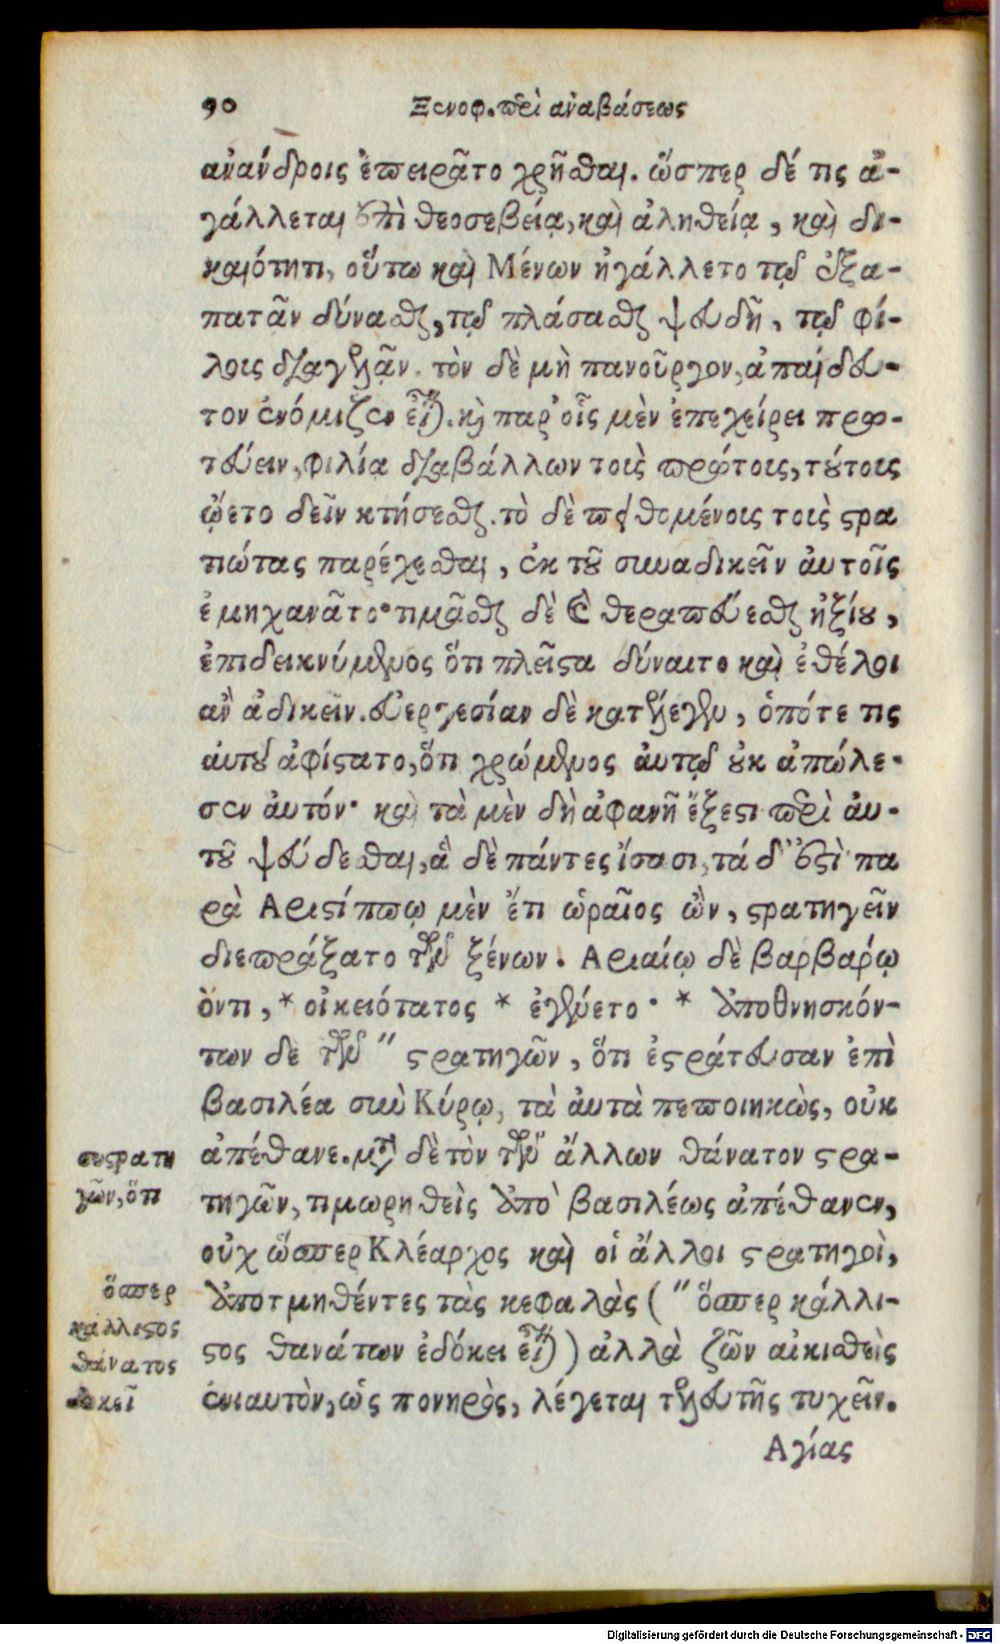 90 Ξενοφ. περὶ ἀναβάσεως
ἀνάνδροις ἐπειρᾶτο χρῆσθαι. ὥσπερ δέ τις ἀ-
γάλλεται ἐπὶ θεοσεβείᾳ, καὶ ἀληθείᾳ, καὶ δι-
καιότητι, οὕτω καὶ Μένων ἠγάλλετο τῷ ἐξα-
πατᾶν δύνασθαι, τῷ πλάσασθαι ψευδῆ, τῷ φί-
λοις διαγελᾷν. τὸν δὲ μὴ πανοῦργον, ἀπαίδευ-
τον ἐνόμιζεν εἶναι. καὶ παρ' οἷς μὲν ἐπεχείρει πρω-
τεύειν, φιλίᾳ διαβάλλων τοὺς πρώτους, τούτους
ᾤετο δεῖν κτήσεσθαι. τὸ δὲ πειθομένους τοὺς στρα
τιώτας παρέχεσθαι, ἐκ τοῦ συναδικεῖν αὐτοῖς
ἐμηχανᾶτο· τιμᾶσθαι δὲ καὶ θεραπεύεσθαι ἠξίου,
ἐπιδεικνύμενος ὅτι πλεῖστα δύναιτο καὶ ἐθέλοι
ἂν ἀδικεῖν. εὐεργεσίαν δὲ κατέλεγεν, ὁπότε τις
αὐτοῦ ἀφίστατο, ὅτι χρώμενος αὐτῷ οὐκ ἀπώλε-
σεν αὐτόν· καὶ τὰ μὲν δὴ ἀφανῆ ἔξεστι περὶ αὐ-
τοῦ ψεύδεσθαι, ἃ δὲ πάντες ἴσασι, τά δ' ἐστὶ πα
ρὰ Αριστίππῳ μὲν ἔτι ὡραῖος ὢν, στρατηγεῖν
διεπράξατο τῶν ξένων. Αριαίῳ δὲ βαρβάρῳ
ὄντι, * οἰκειότατος * ἐγένετο· * ἀποθνησκόν-
των δὲ τῶν " στρατηγῶν, ὅτι ἐστράτευσαν ἐπὶ
βασιλέα σὺν Κύρῳ, τὰ αὐτὰ πεποιηκὼς, οὐκ
συστρατη
ἀπέθανε. μετὰ δὲ τὸν τῶν ἄλλων θάνατον στρα-
γῶν, ὅτι
τηγῶν, τιμωρηθεὶς ὑπὸ βασιλέως ἀπέθανεν,
οὐχ ὥσπερ Κλέαρχος καὶ οἱ ἄλλοι στρατηγοὶ,
ὅσπερ
ἀποτμηθέντες τὰς κεφαλὰς ( " ὅσπερ κάλλι-
κάλλιστος
στος θανάτων ἐδόκει εἶναι ) ἀλλὰ ζῶν αἰκισθεὶς
θάνατος
δοκεῖ
ἐνιαυτὸν, ὡς πονηρὸς, λέγεται τελευτῆς τυχεῖν.
Αγίας
Digitalisierung gefördert durch die Deutsche Forschungsgemeinschaft - DFG